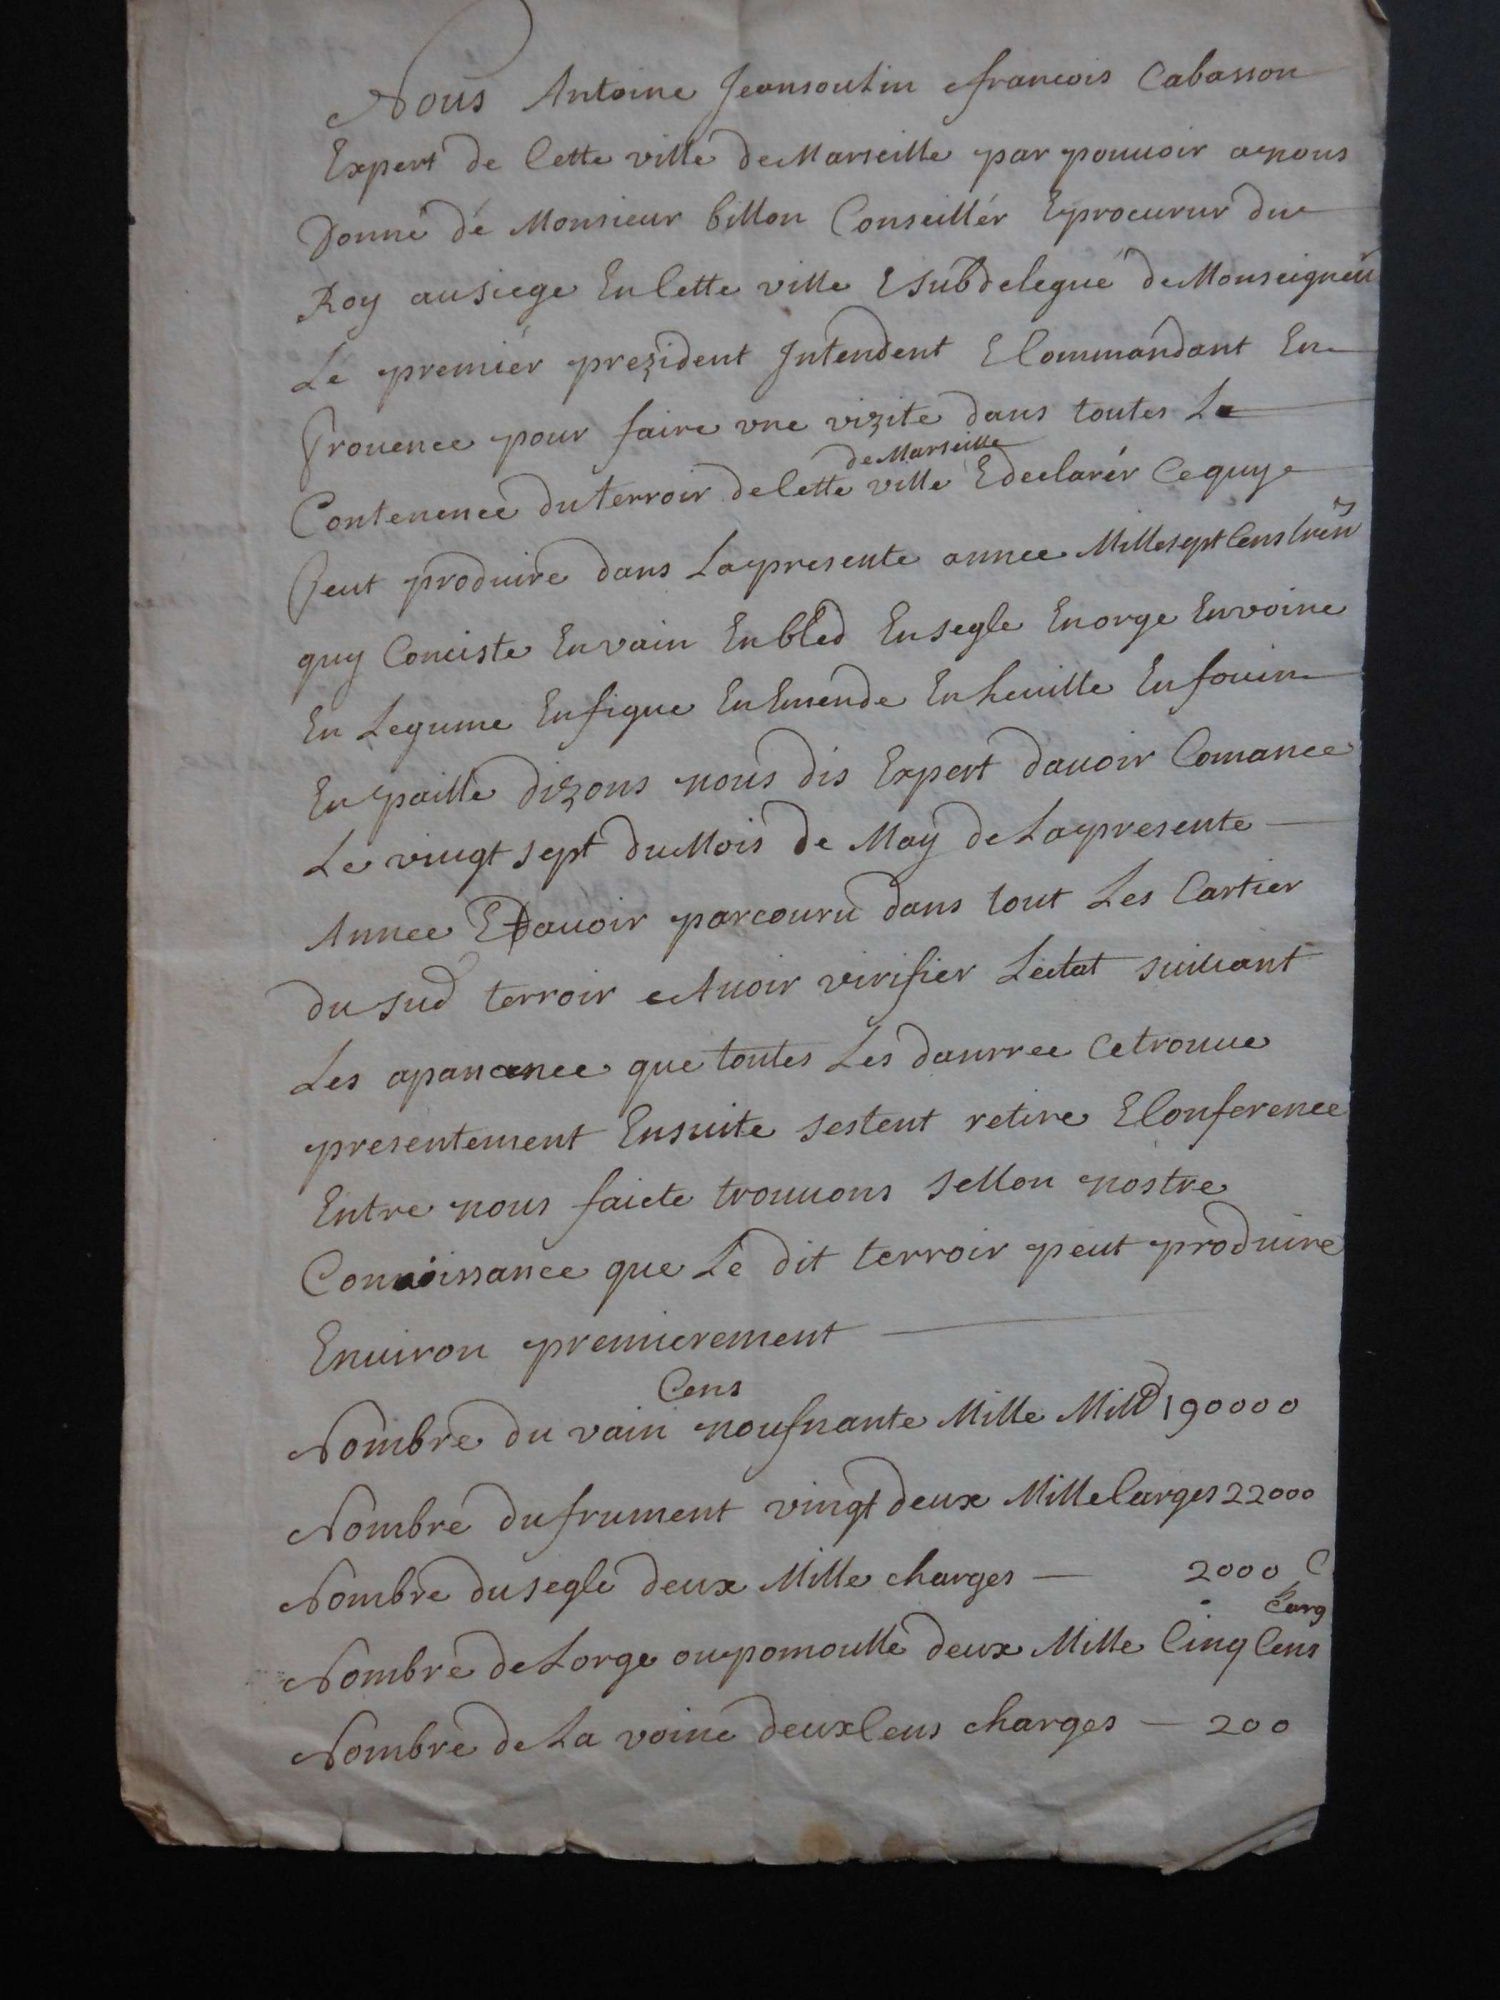 Nous Antoine Jeansoulin efrancois Cabasson
Expert de Cette ville de Marseille par pouuoir anous
Donné dé Monsieur billon Conseillér Eprocurur du
Roy ausiege En Cette ville Esubdelegué de Monseigneur
Le premiér prezident Jntendent E Commandant En
Prouence pour faire vne vizite dans toutes La
de Marseille
Contenence du terroir de Cette ville E declarér Cequy
Peut produire dans La presente annee Mille sept Cens tren
quy Conciste En vain En bled En segle En orge En voine
En Legume En figue En Emende En heuille En fouin
En paille dizons nous dis Expert dauoir Comance
Le vingt sept du Mois de May de La presente
Annee E dauoir parcouru dans tout Les Cartier
du sud terroir e Auoir virifier Lestat suiuant
Les apanance que toutes Les danrree Cetrouue
presentement Ensuite sestent retire E Conference
Entre nous faicte trouuons sellon nostre
Connoissance que Le dit terroir peut produire
Enuiron premierement
Cens
Nombre du vain noufnante Mille Mill 190000
Nombre du frument vingt deux Mille Carges 22000
Nombre du segle deux Mille charges — 2000 C
Carg
Nombre de Lorge ou pomoulle deux Mille Cinq Cens
Nombre de La voine deux Cens charges — 200